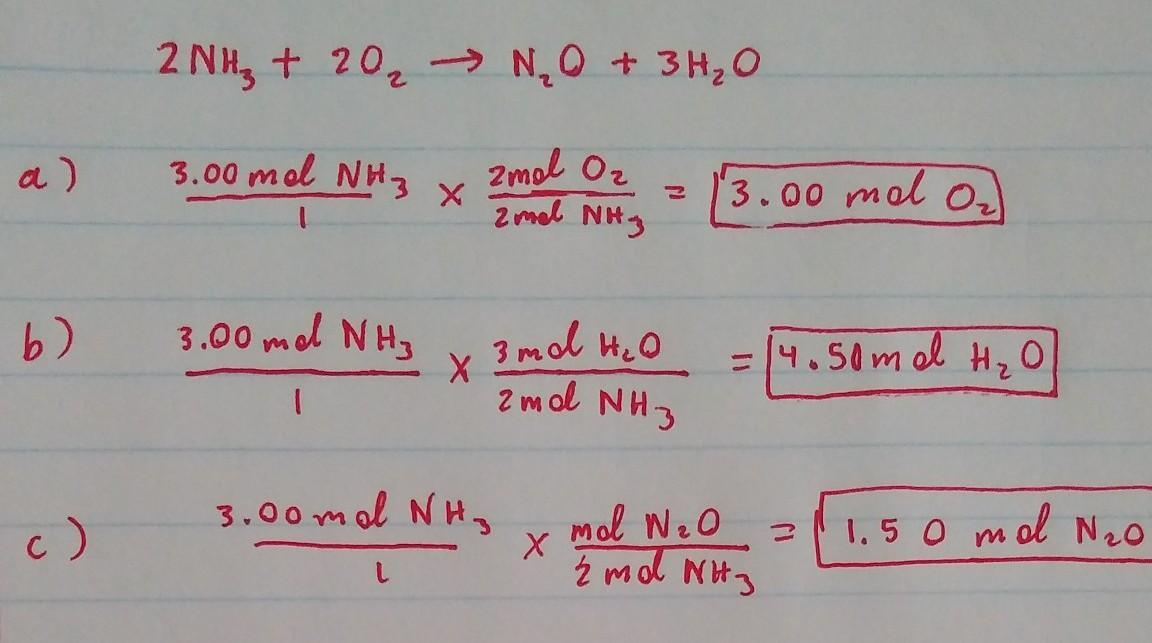 2NH₃ + 2O₂ → N₂O + 3H₂O
a) 3.00 mol NH₃ / 1 × 2mol O₂ / 2mol NH₃ = 3.00 mol O₂
b) 3.00 mol NH₃ / 1 × 3mol H₂O / 2mol NH₃ = 4.50 mol H₂O
c) 3.00 mol NH₃ / 1 × mol N₂O / 2 mol NH₃ = 1.50 mol N₂O